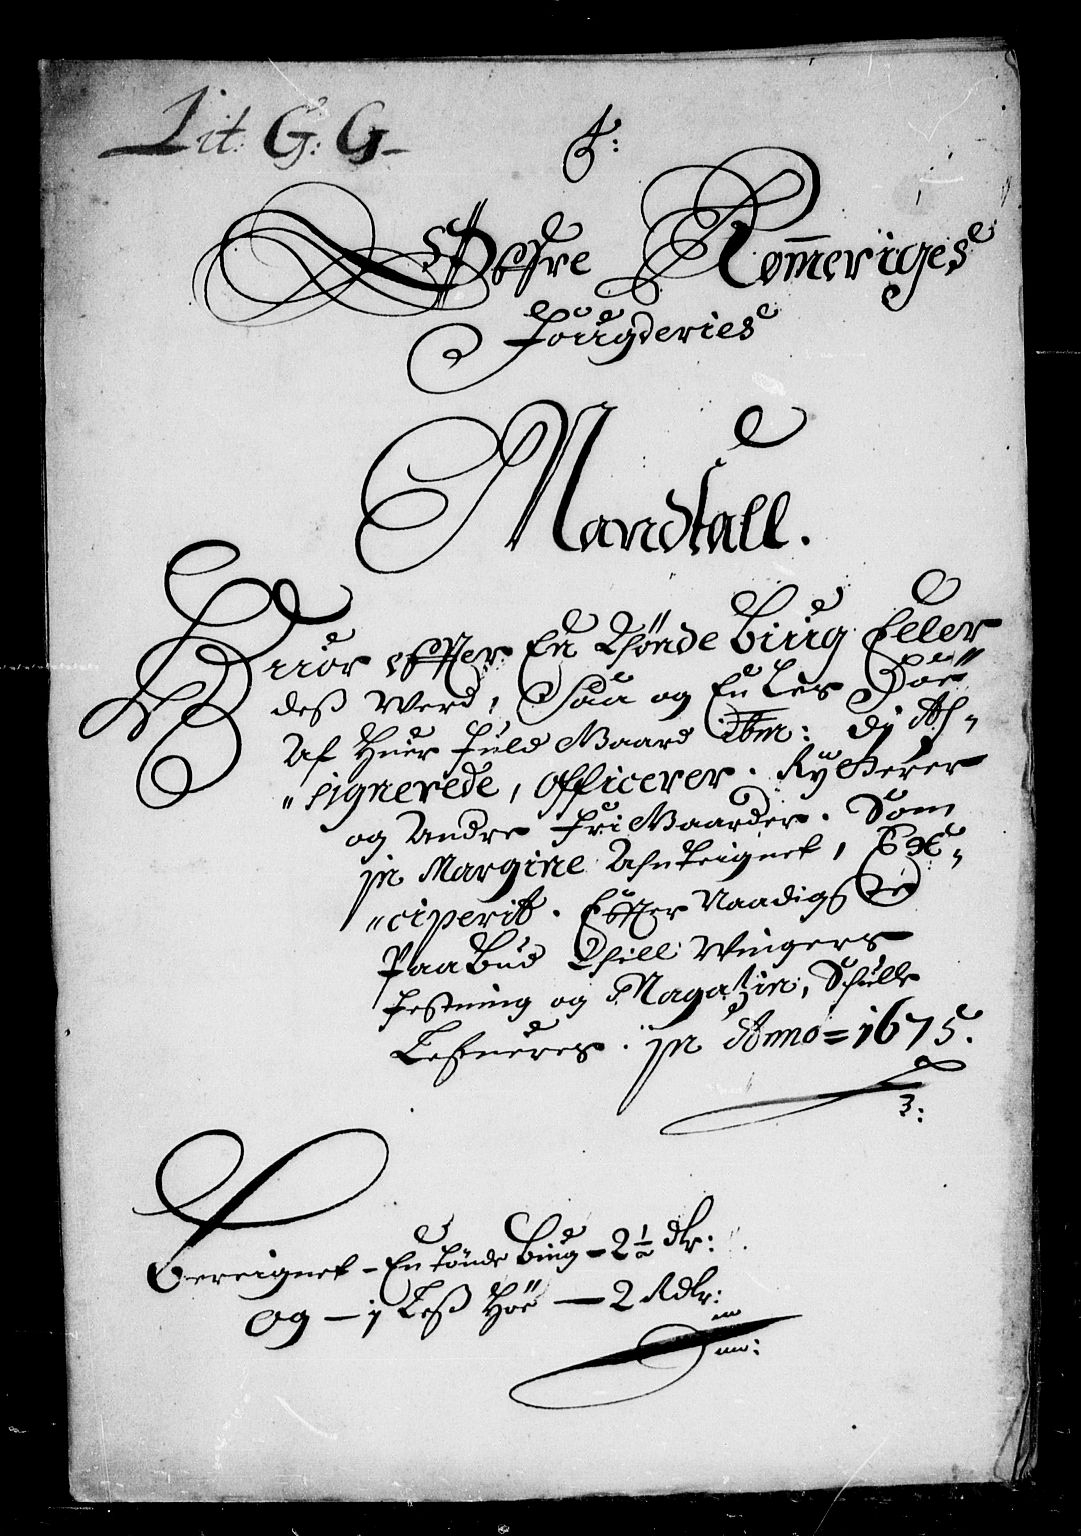 Lit: G: G
Øffre Romeriges
Fougderies
Mandtall.
Huor effter En Tønde Biug Eller
dess Werd, Saa og En Les Høe
Af Huer fuld Gaard Item: Dj As=
"signerede, Officerer. Rytterer
og Andre fri Gaarder. Som
jn Margine Anteignet, Ex=
"ciperit. Effter Naadigste
Paabud Thill Wingers
Festning og Magatzin, Schulle
Lefueres. jn Anno=1675.
3:
Bereignet – En tønde Biug – 2½ dlr:
Og – 1 Less Høe – 2 Rdlr: